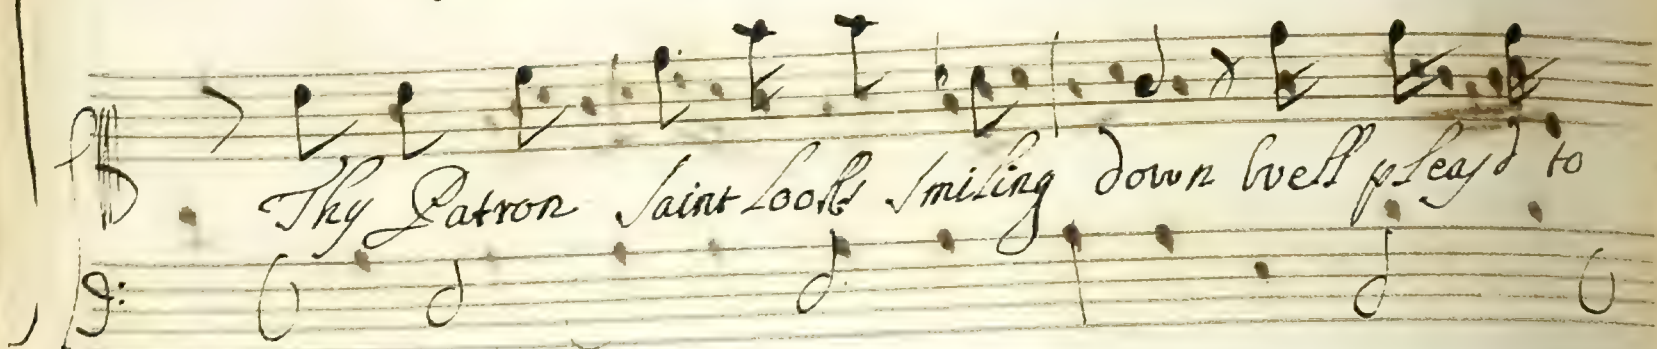 Thy Patron Saint looks Smiling down well pleas'd to